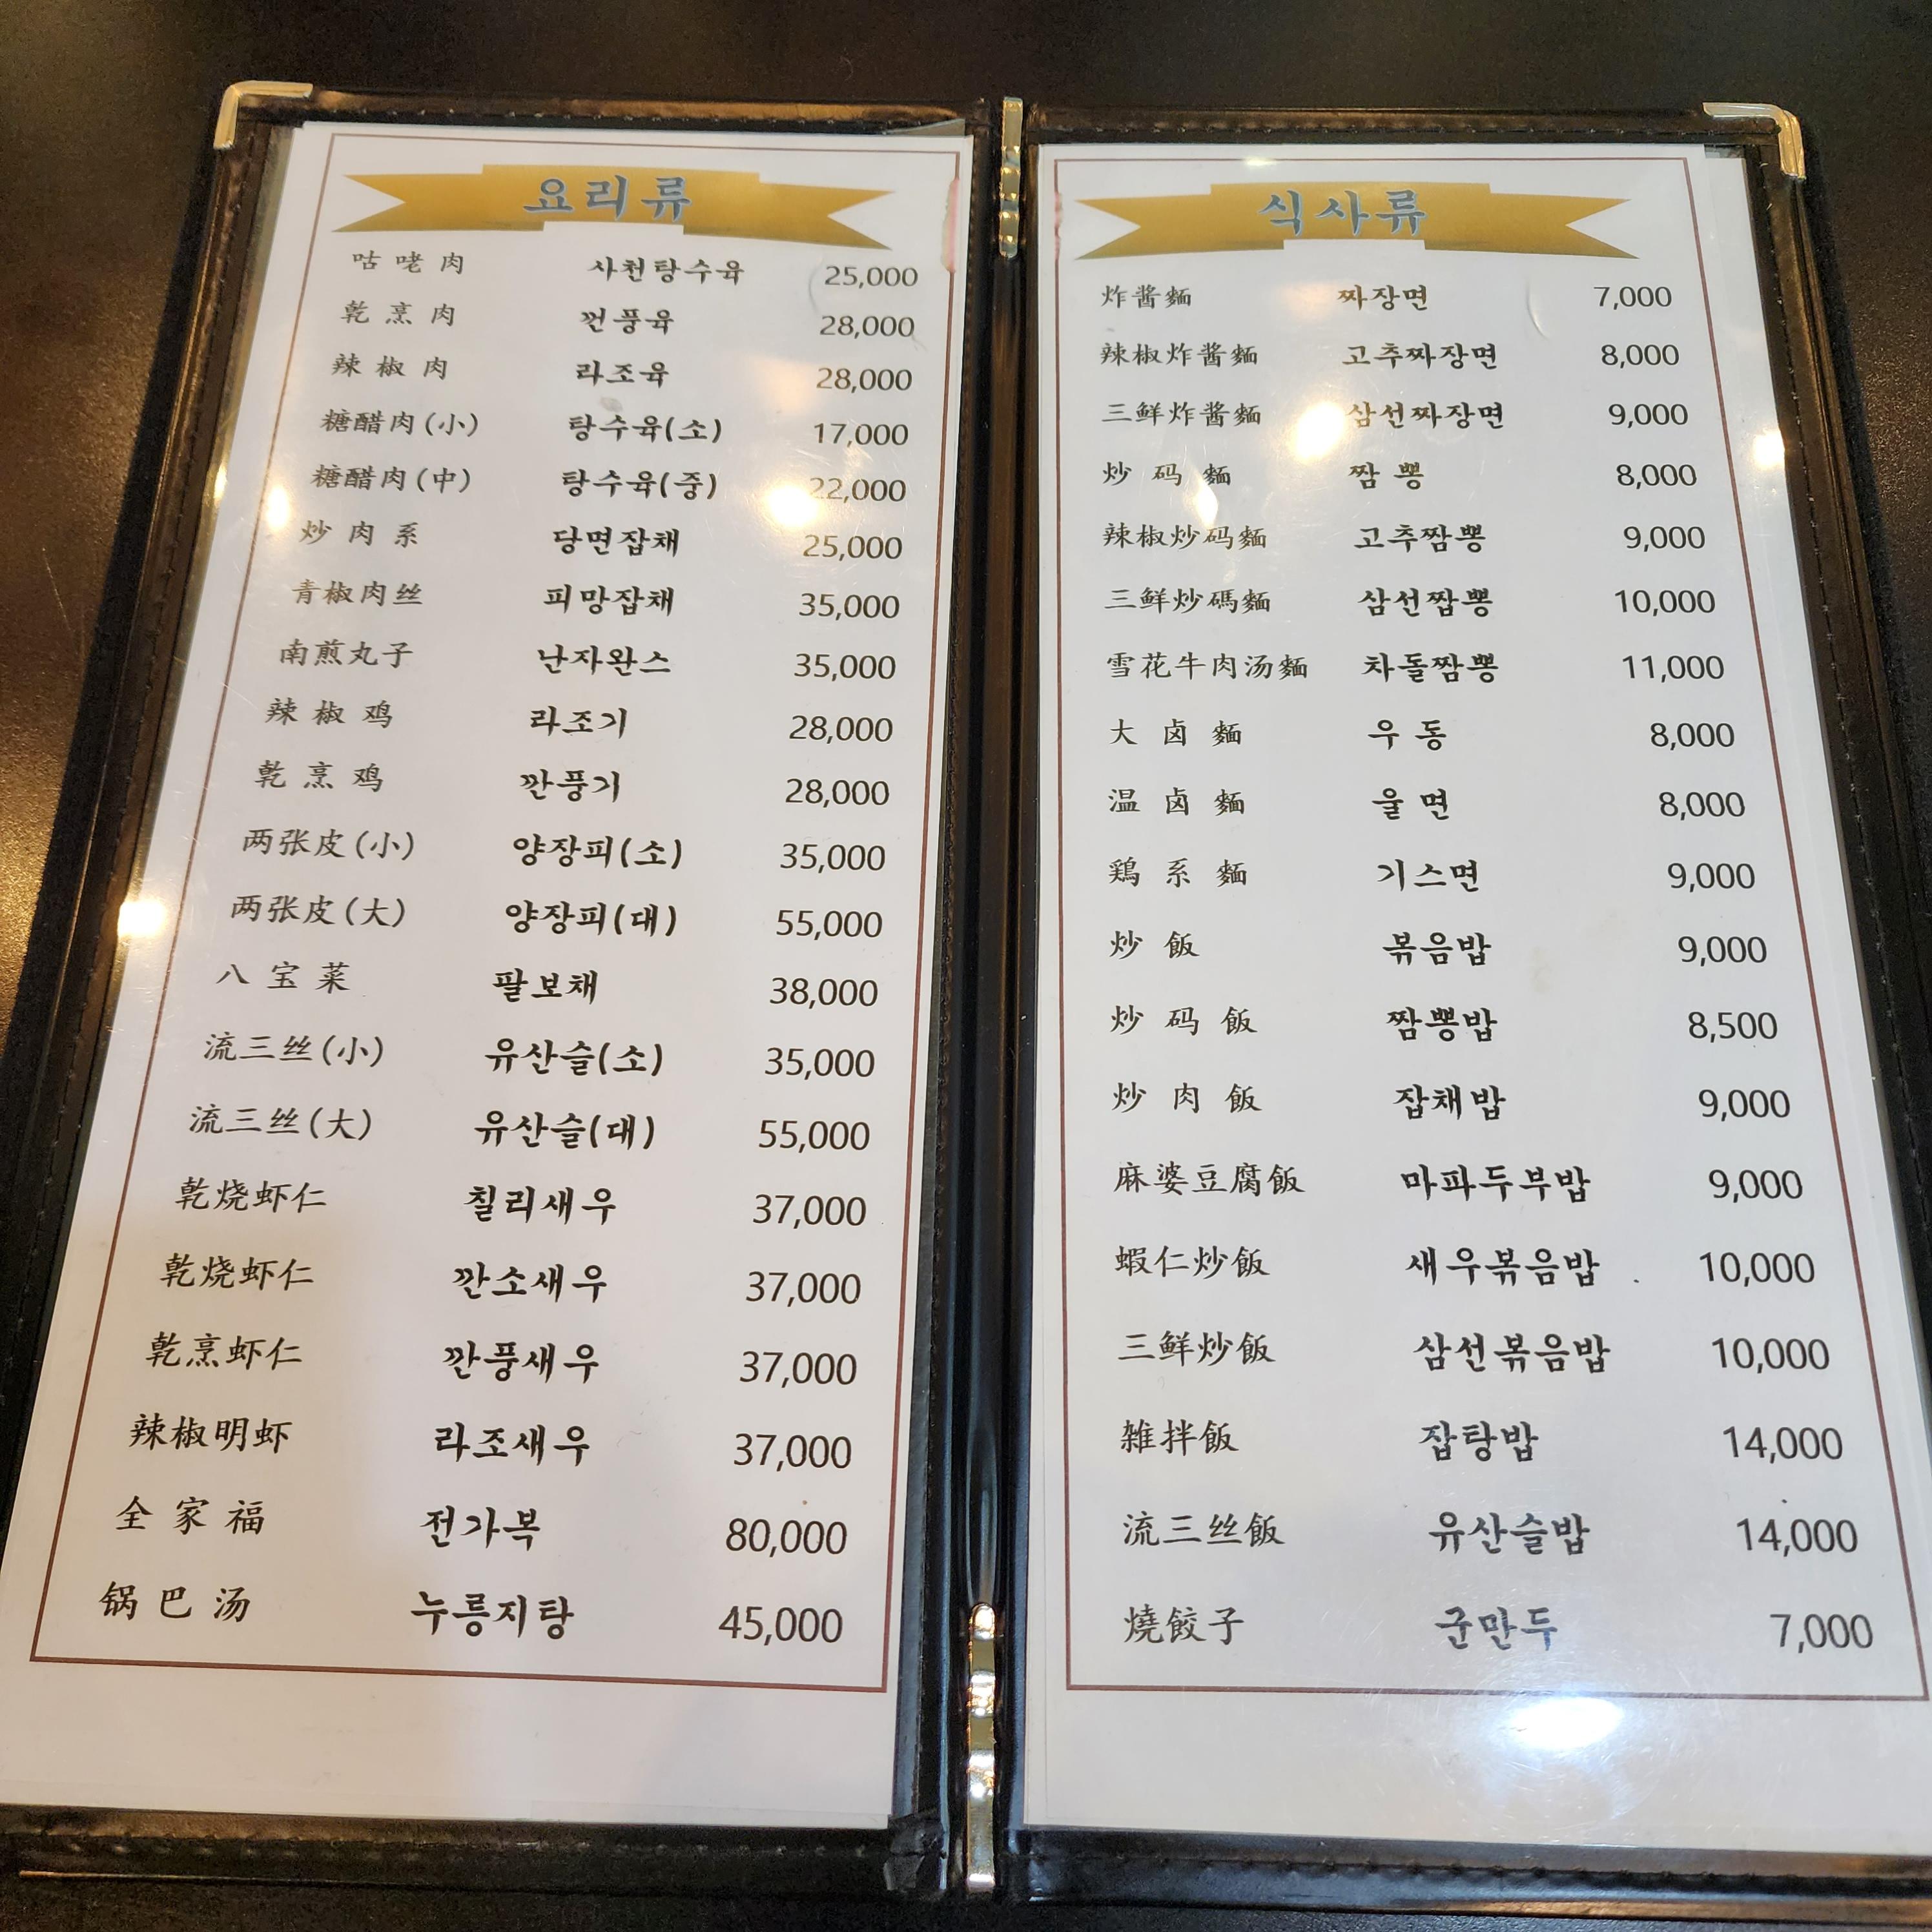 요리류
咕咾肉 사천탕수육 25,000
乾烹肉 껀풍육 28,000
辣椒肉 라조육 28,000
糖醋肉(小) 탕수육(소) 17,000
糖醋肉(中) 탕수육(중) 22,000
炒肉系 당면잡채 25,000
青椒肉丝 피망잡채 35,000
南煎丸子 난자완스 35,000
辣椒鸡 라조기 28,000
乾烹鸡 깐풍기 28,000
两张皮(小) 양장피(소) 35,000
两张皮(大) 양장피(대) 55,000
八宝菜 팔보채 38,000
流三丝(小) 유산슬(소) 35,000
流三丝(大) 유산슬(대) 55,000
乾烧虾仁 칠리새우 37,000
乾烧虾仁 깐소새우 37,000
乾烹虾仁 깐풍새우 37,000
辣椒明虾 라조새우 37,000
全家福 전가복 80,000
锅巴汤 누릉지탕 45,000
식사류
炸酱麵 짜장면 7,000
辣椒炸酱麵 고추짜장면 8,000
三鲜炸酱麵 삼선짜장면 9,000
炒码麵 짬뽕 8,000
辣椒炒码麵 고추짬뽕 9,000
三鲜炒碼麵 삼선짬뽕 10,000
雪花牛肉汤麵 차돌짬뽕 11,000
大卤麵 우동 8,000
温卤麵 울면 8,000
鶏系麵 기스면 9,000
炒飯 볶음밥 9,000
炒码飯 짬뽕밥 8,500
炒肉飯 잡채밥 9,000
麻婆豆腐飯 마파두부밥 9,000
蝦仁炒飯 새우볶음밥 10,000
三鲜炒飯 삼선볶음밥 10,000
雑拌飯 잡탕밥 14,000
流三丝飯 유산슬밥 14,000
燒餃子 군만두 7,000